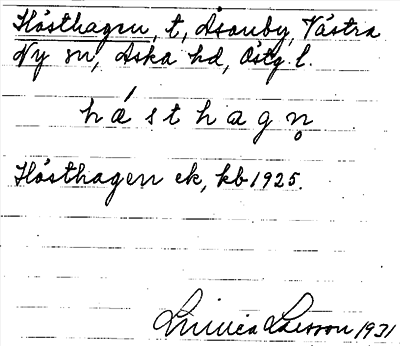 Hösthagen, t, Åsanby, Västra
Ny sn, Aska hd, Östg. l.
hǻsthagn̥
Hösthagen ek, kb 1925.
Linnea Larsson 1931